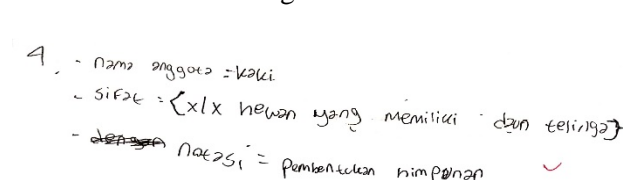 4. - nama anggota = kaki
- sifat = {x|x hewan yang memiliki daun telinga}
- dengan notasi = pembentukan himpunan